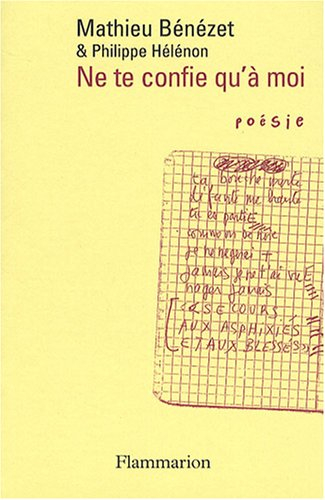 Mathieu Bénézet
& Philippe Hélénon
Ne te confie qu'à moi
poésie
ta bouche morte
défunte me hante
tu es partie
comme on se noie
je ne nagerai +
jamais je ne t'ai vue
nager jamais
(SECOURS
AUX ASPHYXIÉS
ET AUX BLESSÉS)
Flammarion